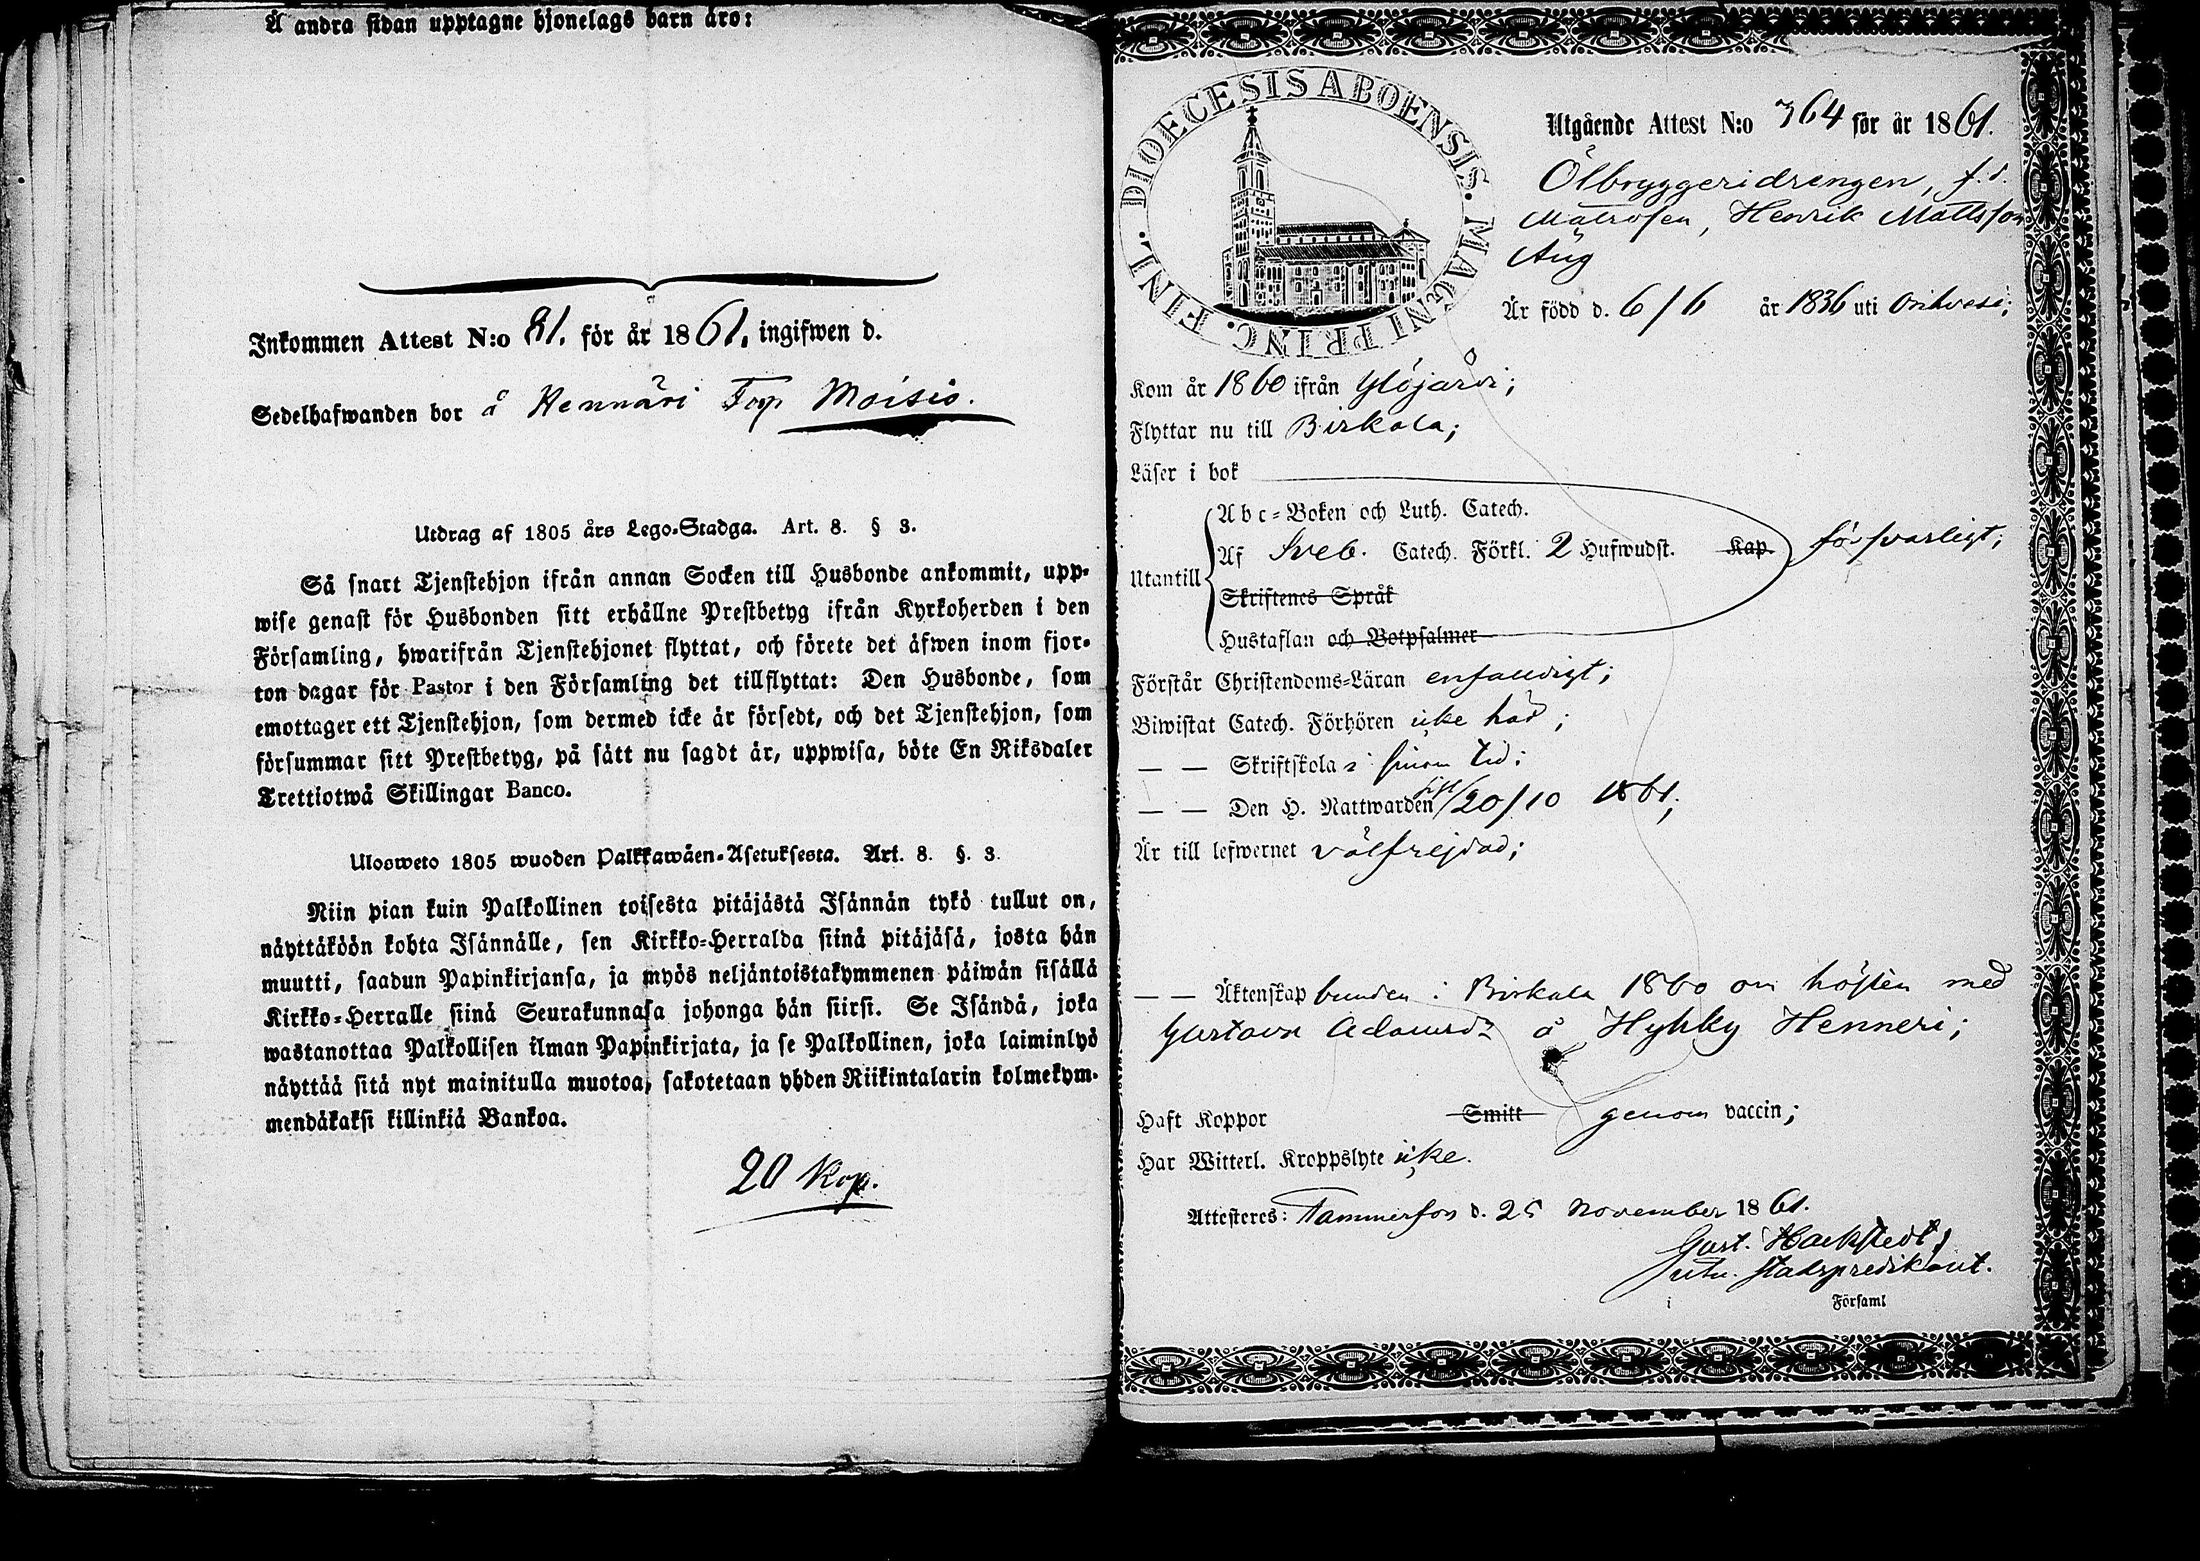 Å andra sidan upptagne hjonelags barn äro:
Inkommen Attest N:o 81. för år 1861, ingifwen d.
Sedelhafwanden bor å Hennäri Torp Moisio.
Utdrag af 1805 års Lego-Stadga. Art. 8. § 3.
Så snart Tjenstehjon ifrån annan Socken till Husbonde ankommit, upp-
wise genast för Husbonden sitt erhållne Prestbetyg ifrån Kyrkoherden i den
Församling, hwarifrån Tjenstehjonet flyttat, och förete det äfwen inom fjor-
ton dagar för Pastor i den Församling det tillflyttat: Den Husbonde, som
emottager ett Tjenstehjon, som dermed icke är försedt, och det Tjenstehjon, som
försummar sitt Prestbetyg, på sätt nu sagdt är, uppwisa, böte En Riksdaler
Trettiotwå Skillingar Banco.
Ulosweto 1805 wuoden Palkkawäen-Asetuksesta. Art. 8. §. 3.
Niin pian kuin Palkollinen toisesta pitäjästä Isännän tykö tullut on,
näyttäköön kohta Isännälle, sen Kirkko-Herralda siinä pitäjäsä, josta hän
muutti, saadun Papinkirjansa, ja myös neljäntoistakymmenen päiwän sisällä
Kirkko-Herralle siinä Seurakunnasa johonga hän siirsi. Se Isändä, joka
wastanottaa Palkollisen ilman Papinkirjata, ja se Palkollinen, joka laiminlyö
näyttää sitä nyt mainitulla muotoa, sakotetaan yhden Riikintalarin kolmekym-
mendäkaksi killinkiä Bankoa.
20 Kop.
DIOECESIS ABOENSIS. MAGNI PRINC. FINL.
Utgående Attest N:o 364 för år 1861.
Ölbryggeridrengen, f.d.
Matrosen, Henrik Mattsson
Äug
Är född d. 6/6 år 1836 uti Orihvesi;
Kom år 1860 ifrån Ylöjärvi;
Flyttar nu till Birkala;
Läser i bok
Abc-Boken och Luth. Catech.
Utantill Af Sveb. Catech. Förkl. 2 Hufwudst. Kap. försvarligt;
Skriftenes Språk
Hustaflan och Botpsalmer
Förstår Christendoms-Läran enfaldigt;
Biwistat Catech. Förhören icke här;
— — Skriftskola i sinom tid;
— — Den H. Nattwarden sist 20/10 1861;
Är till lefwernet välfrejdad;
— — Äktenskap bunden i Birkala 1860 om hösten med
Gustava Adamsdr å Hyhky Henneri;
Haft Koppor Smitt genom vaccin;
Har Witterl. Kroppslyte icke.
Attesteres: Tammerfors d. 25 November 1861.
Gust. Hackstedt,
stadspredikant.
i Församl